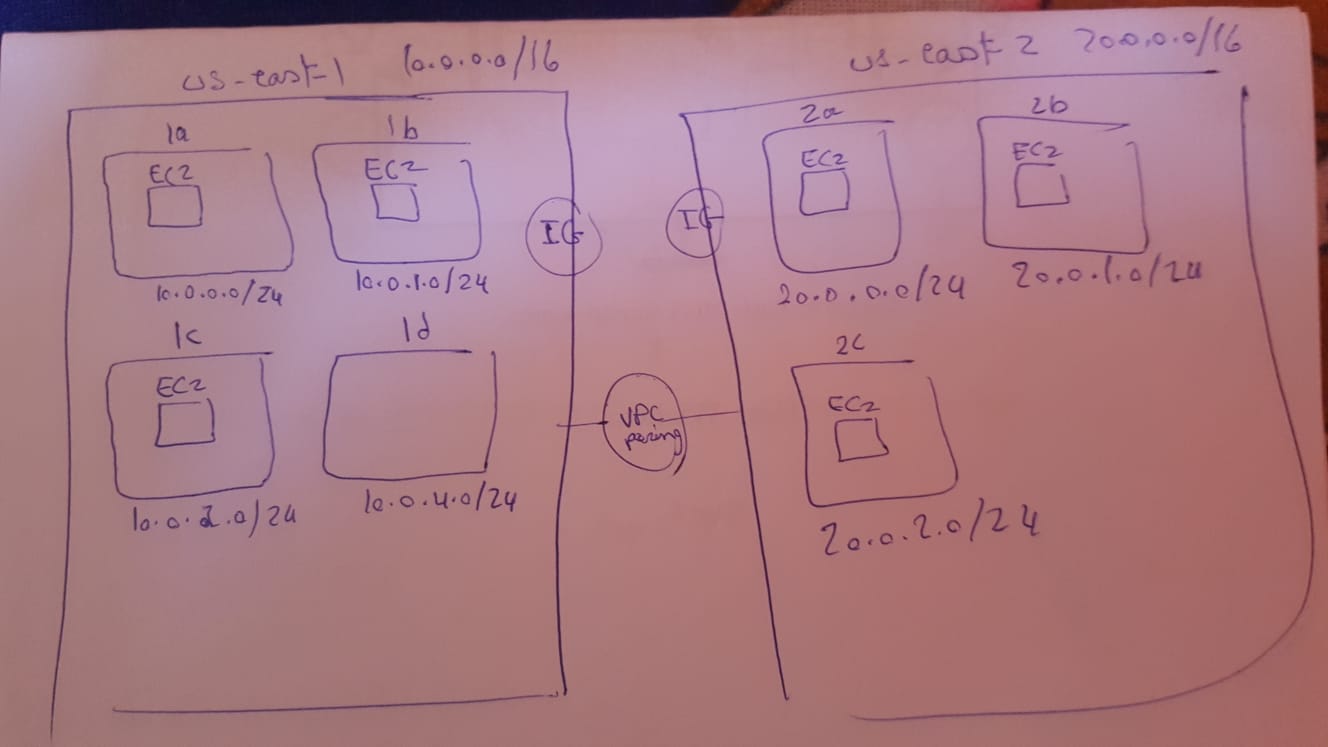 us-east-1 10.0.0.0/16
1a
EC2
10.0.0.0/24
1b
EC2
10.0.1.0/24
1c
EC2
10.0.2.0/24
1d
10.0.4.0/24
IG
VPC
pering
IG
us-east 2 20.0.0.0/16
2a
EC2
20.0.0.0/24
2b
EC2
20.0.1.0/24
2c
EC2
20.0.2.0/24